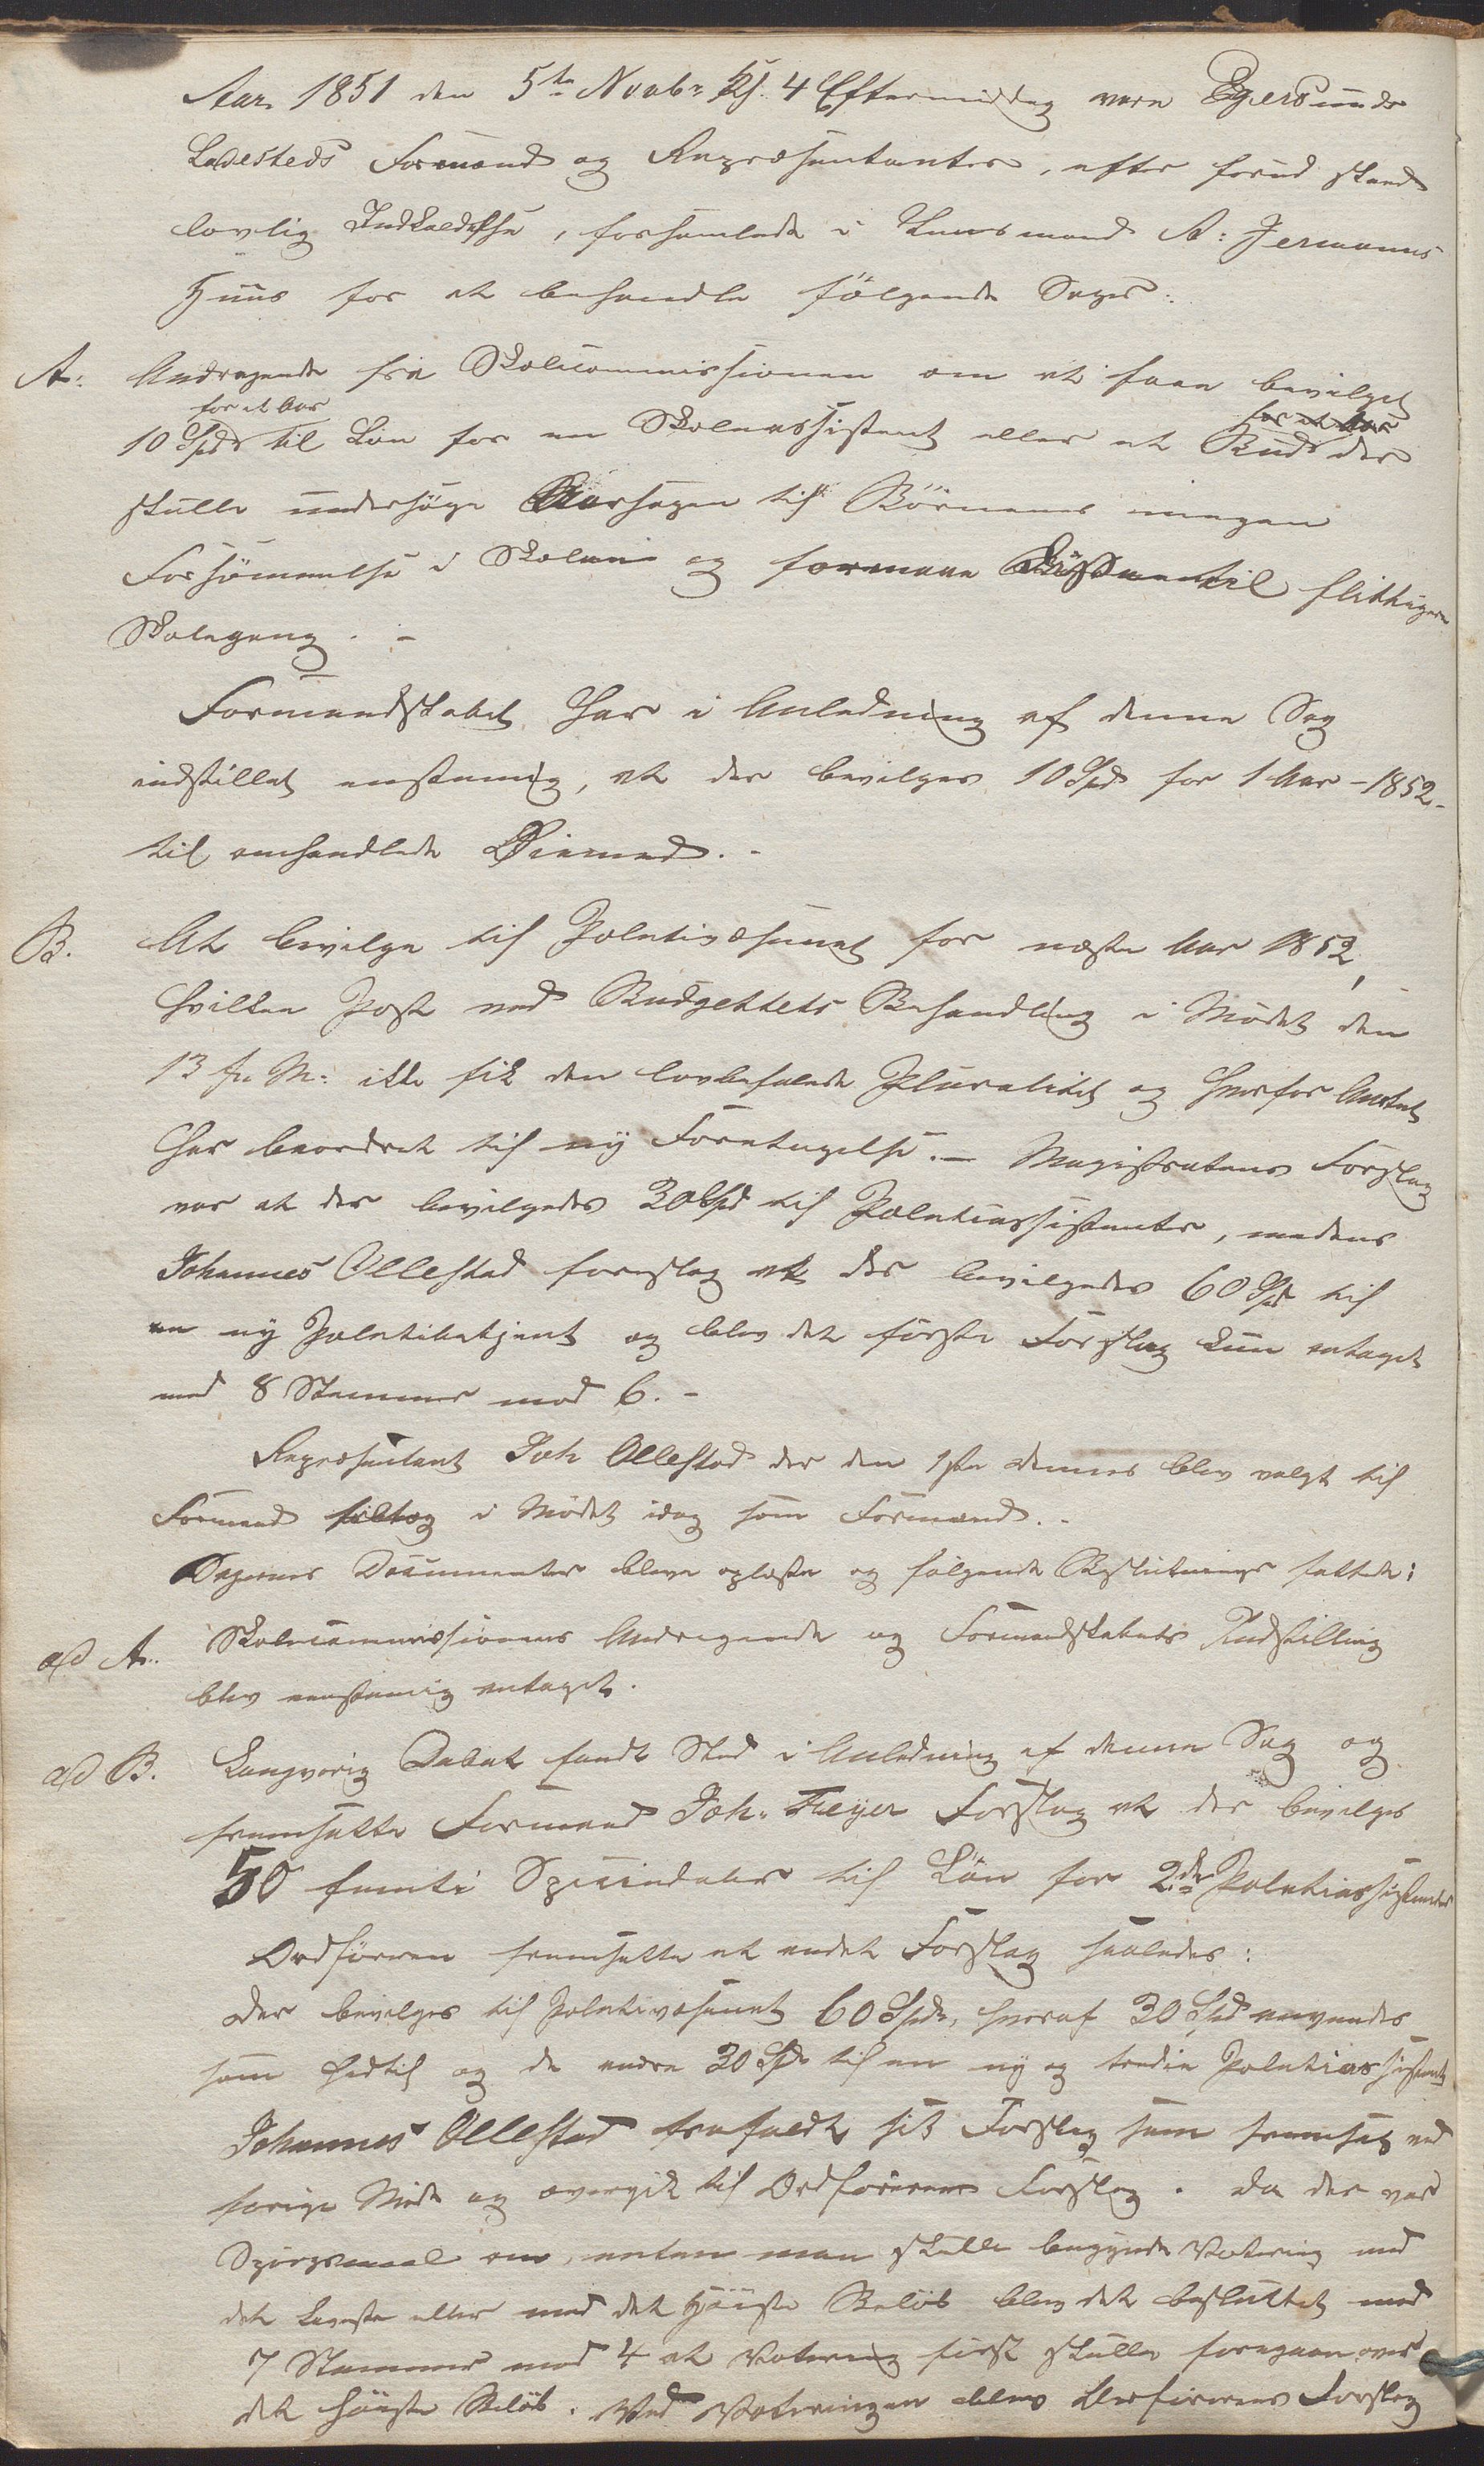 Aar 1851 den 5te Novbr Kl. 4 Eftermiddag vare Egersunds
Ladesteds Formænd og Repræsentanter, efter forud skeed
lovlig Indkaldelse, forsamlede i Kunsmand A: Jermanns
Huus for at behandle følgende Sager:
A: Andragende fra Skolecommissionen om at faae bevilget
for et Aar
10 Spd til Løn for en Skoleassistent eller et Bud der
skulle undersøge Aarsagen til Børnenes megen
Forsømmelse i Skolen og formaae til flittigere
Skolegang. -
Formandskabet har i Anledning af denne Sag
indstillet enstemig, at der bevilges 10 Spd for 1 Aar - 1852 -
til omhandlede Øiemed. -
B. At bevilge til Politivæsenet for næste Aar 1852,
hvilken Post ved Budgettets Behandling i Mødet den
13 f. M: ikke fik den lovbefalede Pluralitet og hvorfor Amtet
har beordret til ny Foretagelse. - Magistratens Forslag
var at der bevilgedes 30 Spd til Politieassistenter, medens
Johannes Ollestad foreslog at der bevilgedes 60 Spd til
en ny Politibetjent og blev det første Forslag kun antaget
med 8 Stemmer mod 6. -
Repræsentant Joh Ollestad der den 1ste dennes blev valgt til
Formand deltog i Mødet idag som Formand. -
Sagernes Documenter bleve oplæste og følgende Beslutninger fattede:
ad A. Skolecommissionens Andragende og Formandskabets Indstilling
blev eenstemig antaget.
ad B. Langvarig Debat fandt Sted i Anledning af denne Sag og
fremsatte Formand Joh. Feyer Forslag at der bevilges
50 femti Speciedaler til Løn for 2de Politieassistenter
Ordføreren fremsatte et andet Forslag saaledes:
der bevilges til Politivæsenet 60 Spd, hvoraf 30 Spd anvendes
som hidtil og de andre 30 Spd til en ny og tredie Politieassistent
Johannes Ollestad frafaldt sit Forslag som fremsat ved
forrige Møde og overgik til Ordførerens Forslag. da der var
Spørgsmaal om, enten man skulle begynde Votering med
det Laveste eller med det Høieste Beløb blev det besluttet med
7 Stemmer mod 4 at Votering først skulle foregaae over
det høieste Beløb. Ved Voteringen blev Ordførerens Forslag